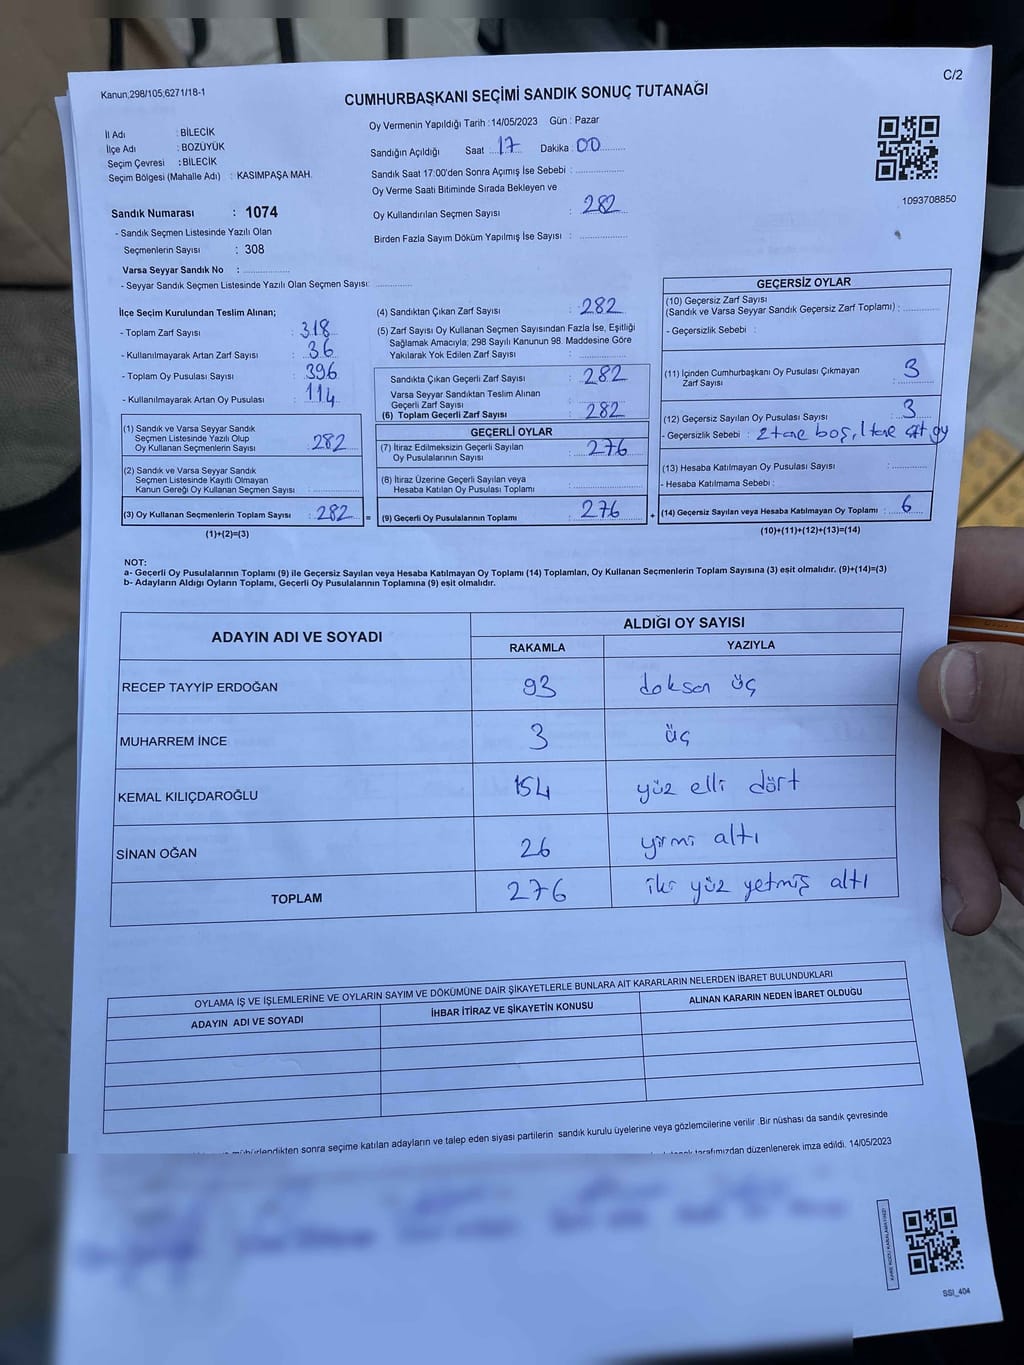 Kanun;298/105;6271/18-1
C/2
CUMHURBAŞKANI SEÇİMİ SANDIK SONUÇ TUTANAĞI
İl Adı : BİLECİK
İlçe Adı : BOZÜYÜK
Seçim Çevresi : BİLECİK
Seçim Bölgesi (Mahalle Adı) : KASIMPAŞA MAH.
Sandık Numarası : 1074
- Sandık Seçmen Listesinde Yazılı Olan
Seçmenlerin Sayısı : 308
Varsa Seyyar Sandık No :
- Seyyar Sandık Seçmen Listesinde Yazılı Olan Seçmen Sayısı:
Oy Vermenin Yapıldığı Tarih : 14/05/2023 Gün : Pazar
Sandığın Açıldığı Saat 17 Dakika 00
Sandık Saat 17:00'den Sonra Açımış İse Sebebi :
Oy Verme Saati Bitiminde Sırada Bekleyen ve
Oy Kullandırılan Seçmen Sayısı : 282
Birden Fazla Sayım Döküm Yapılmış İse Sayısı :
1093708850
İlçe Seçim Kurulundan Teslim Alınan;
- Toplam Zarf Sayısı : 318
- Kullanılmayarak Artan Zarf Sayısı : 36
- Toplam Oy Pusulası Sayısı : 396
- Kullanılmayarak Artan Oy Pusulası : 114
(1) Sandık ve Varsa Seyyar Sandık
Seçmen Listesinde Yazılı Olup
Oy Kullanan Seçmenlerin Sayısı : 282
(2) Sandık ve Varsa Seyyar Sandık
Seçmen Listesinde Kayıtlı Olmayan
Kanun Gereği Oy Kullanan Seçmen Sayısı :
(3) Oy Kullanan Seçmenlerin Toplam Sayısı : 282 =
(1)+(2)=(3)
(4) Sandıktan Çıkan Zarf Sayısı : 282
(5) Zarf Sayısı Oy Kullanan Seçmen Sayısından Fazla İse, Eşitliği
Sağlamak Amacıyla; 298 Sayılı Kanunun 98. Maddesine Göre
Yakılarak Yok Edilen Zarf Sayısı :
Sandıkta Çıkan Geçerli Zarf Sayısı : 282
Varsa Seyyar Sandıktan Teslim Alınan
Geçerli Zarf Sayısı :
(6) Toplam Geçerli Zarf Sayısı : 282
GEÇERLİ OYLAR
(7) İtiraz Edilmeksizin Geçerli Sayılan
Oy Pusulalarının Sayısı : 276
(8) İtiraz Üzerine Geçerli Sayılan veya
Hesaba Katılan Oy Pusulası Toplamı :
(9) Geçerli Oy Pusulalarının Toplamı : 276 +
GEÇERSİZ OYLAR
(10) Geçersiz Zarf Sayısı
(Sandık ve Varsa Seyyar Sandık Geçersiz Zarf Toplamı) :
- Geçersizlik Sebebi :
(11) İçinden Cumhurbaşkanı Oy Pusulası Çıkmayan
Zarf Sayısı : 3
(12) Geçersiz Sayılan Oy Pusulası Sayısı : 3
- Geçersizlik Sebebi : 2 tane boş, 1 tane çift oy
(13) Hesaba Katılmayan Oy Pusulası Sayısı :
- Hesaba Katılmama Sebebi :
(14) Geçersiz Sayılan veya Hesaba Katılmayan Oy Toplamı : 6
(10)+(11)+(12)+(13)=(14)
NOT:
a- Geçerli Oy Pusulalarının Toplamı (9) ile Geçersiz Sayılan veya Hesaba Katılmayan Oy Toplamı (14) Toplamları, Oy Kullanan Seçmenlerin Toplam Sayısına (3) eşit olmalıdır. (9)+(14)=(3)
b- Adayların Aldığı Oyların Toplamı, Geçerli Oy Pusulalarının Toplamına (9) eşit olmalıdır.
ADAYIN ADI VE SOYADI
ALDIĞI OY SAYISI
RAKAMLA YAZIYLA
RECEP TAYYİP ERDOĞAN 93 doksan üç
MUHARREM İNCE 3 üç
KEMAL KILIÇDAROĞLU 154 yüz elli dört
SİNAN OĞAN 26 yirmi altı
TOPLAM 276 iki yüz yetmiş altı
OYLAMA İŞ VE İŞLEMLERİNE VE OYLARIN SAYIM VE DÖKÜMÜNE DAİR ŞİKAYETLERLE BUNLARA AİT KARARLARIN NELERDEN İBARET BULUNDUKLARI
ADAYIN ADI VE SOYADI İHBAR İTİRAZ VE ŞİKAYETİN KONUSU ALINAN KARARIN NEDEN İBARET OLDUĞU
mühürlendikten sonra seçime katılan adayların ve talep eden siyasi partilerin sandık kurulu üyelerine veya gözlemcilerine verilir. Bir nüshası da sandık çevresinde
tarafımızdan düzenlenerek imza edildi. 14/05/2023
SSI_404